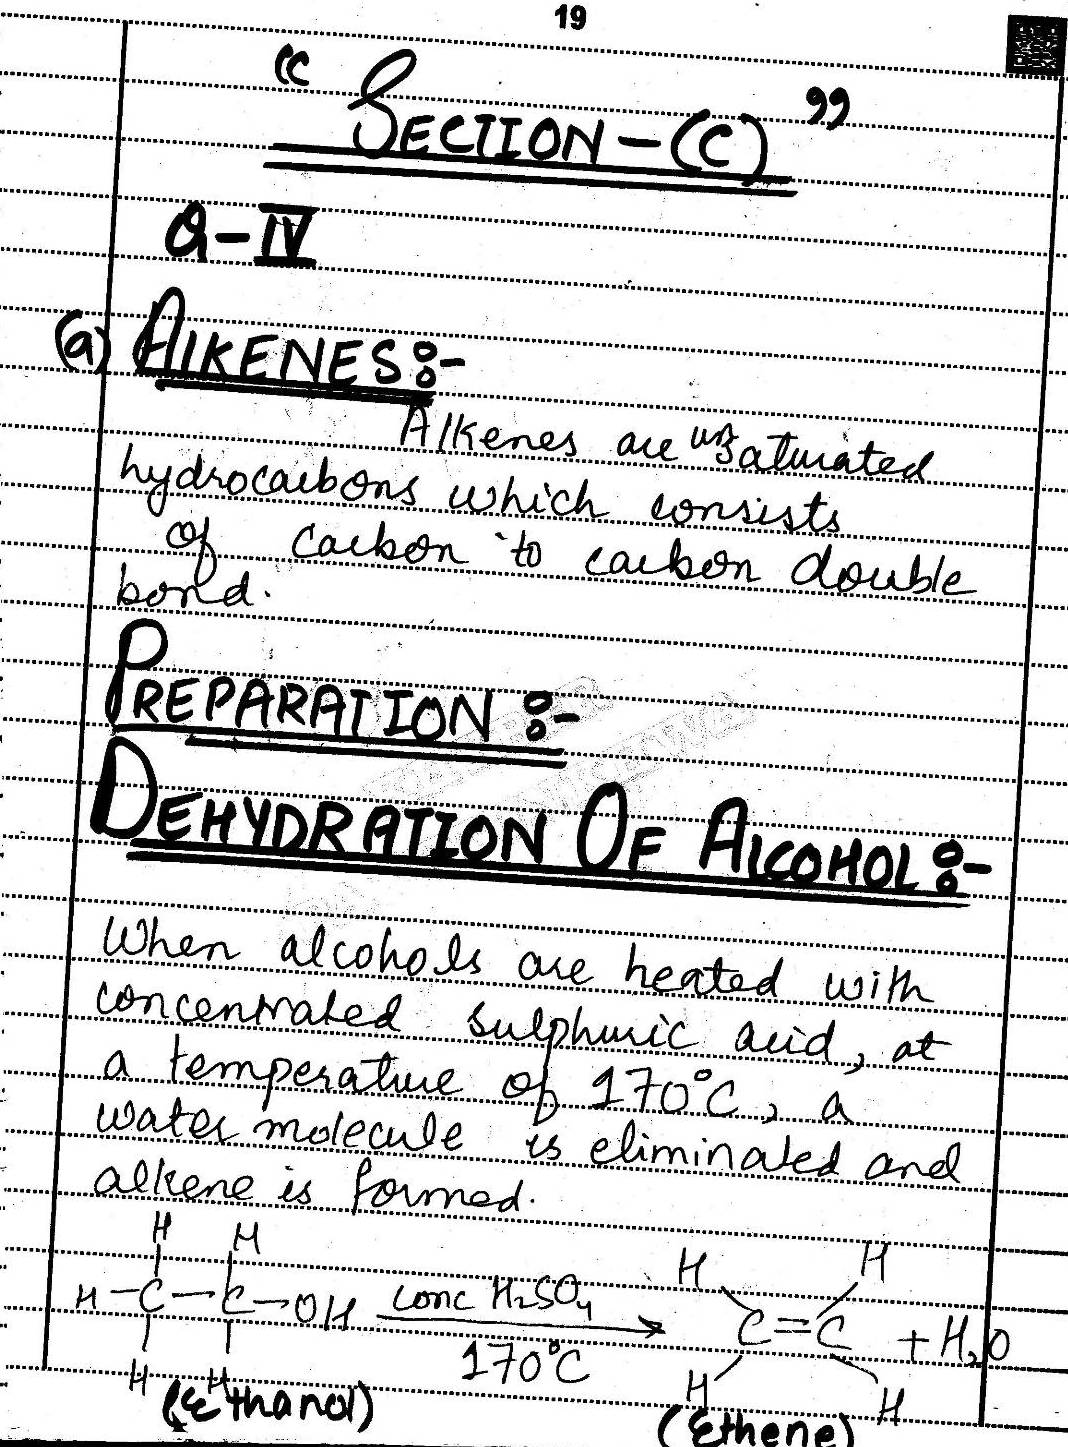 19
“ SECTION-(C) ”
Q-IV
(a) AlKENES:-
Alkenes are unsaturated
hydrocarbons which consists
of carbon to carbon double
bond.
PREPARATION :-
DEHYDRATION OF AlCOHOL:-
When alcohols are heated with
concentrated sulphuric acid, at
a temperature of 170°C, a
water molecule is eliminated and
alkene is formed.
H H H H
H-C-C-OH conc H₂SO₄ C=C + H₂O
170°C
H H H H
(Ethanol) (Ethene)